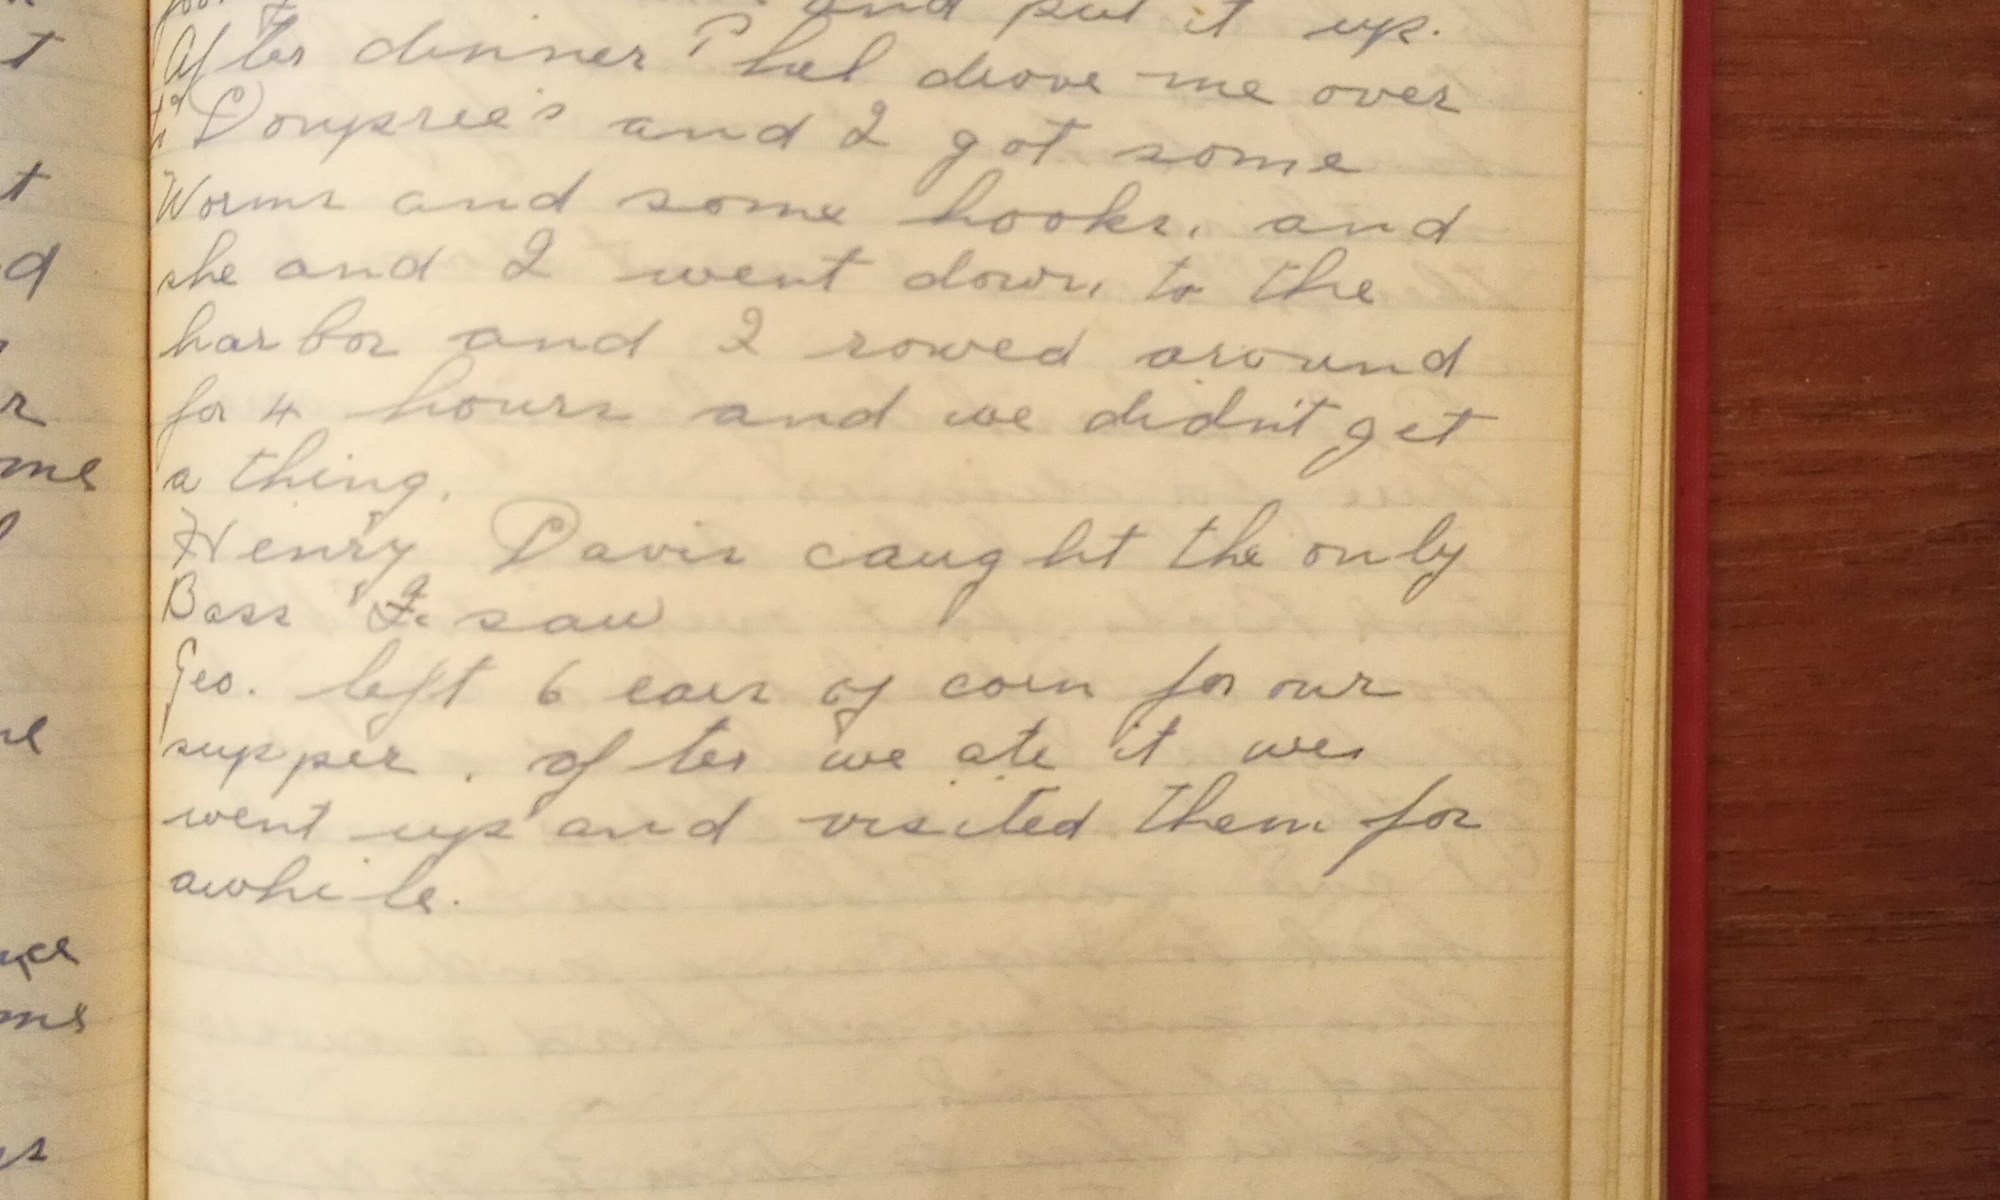 and put it up.
After dinner Phel drove me over
to Doupree's and I got some
Worms and some hooks, and
she and I went down to the
harbor and I rowed around
for 4 hours and we didn't get
a thing.
Henry Davis caught the only
Bass I saw
Geo. left 6 ears of corn for our
supper. after we ate it we
went up and visited them for
awhile.